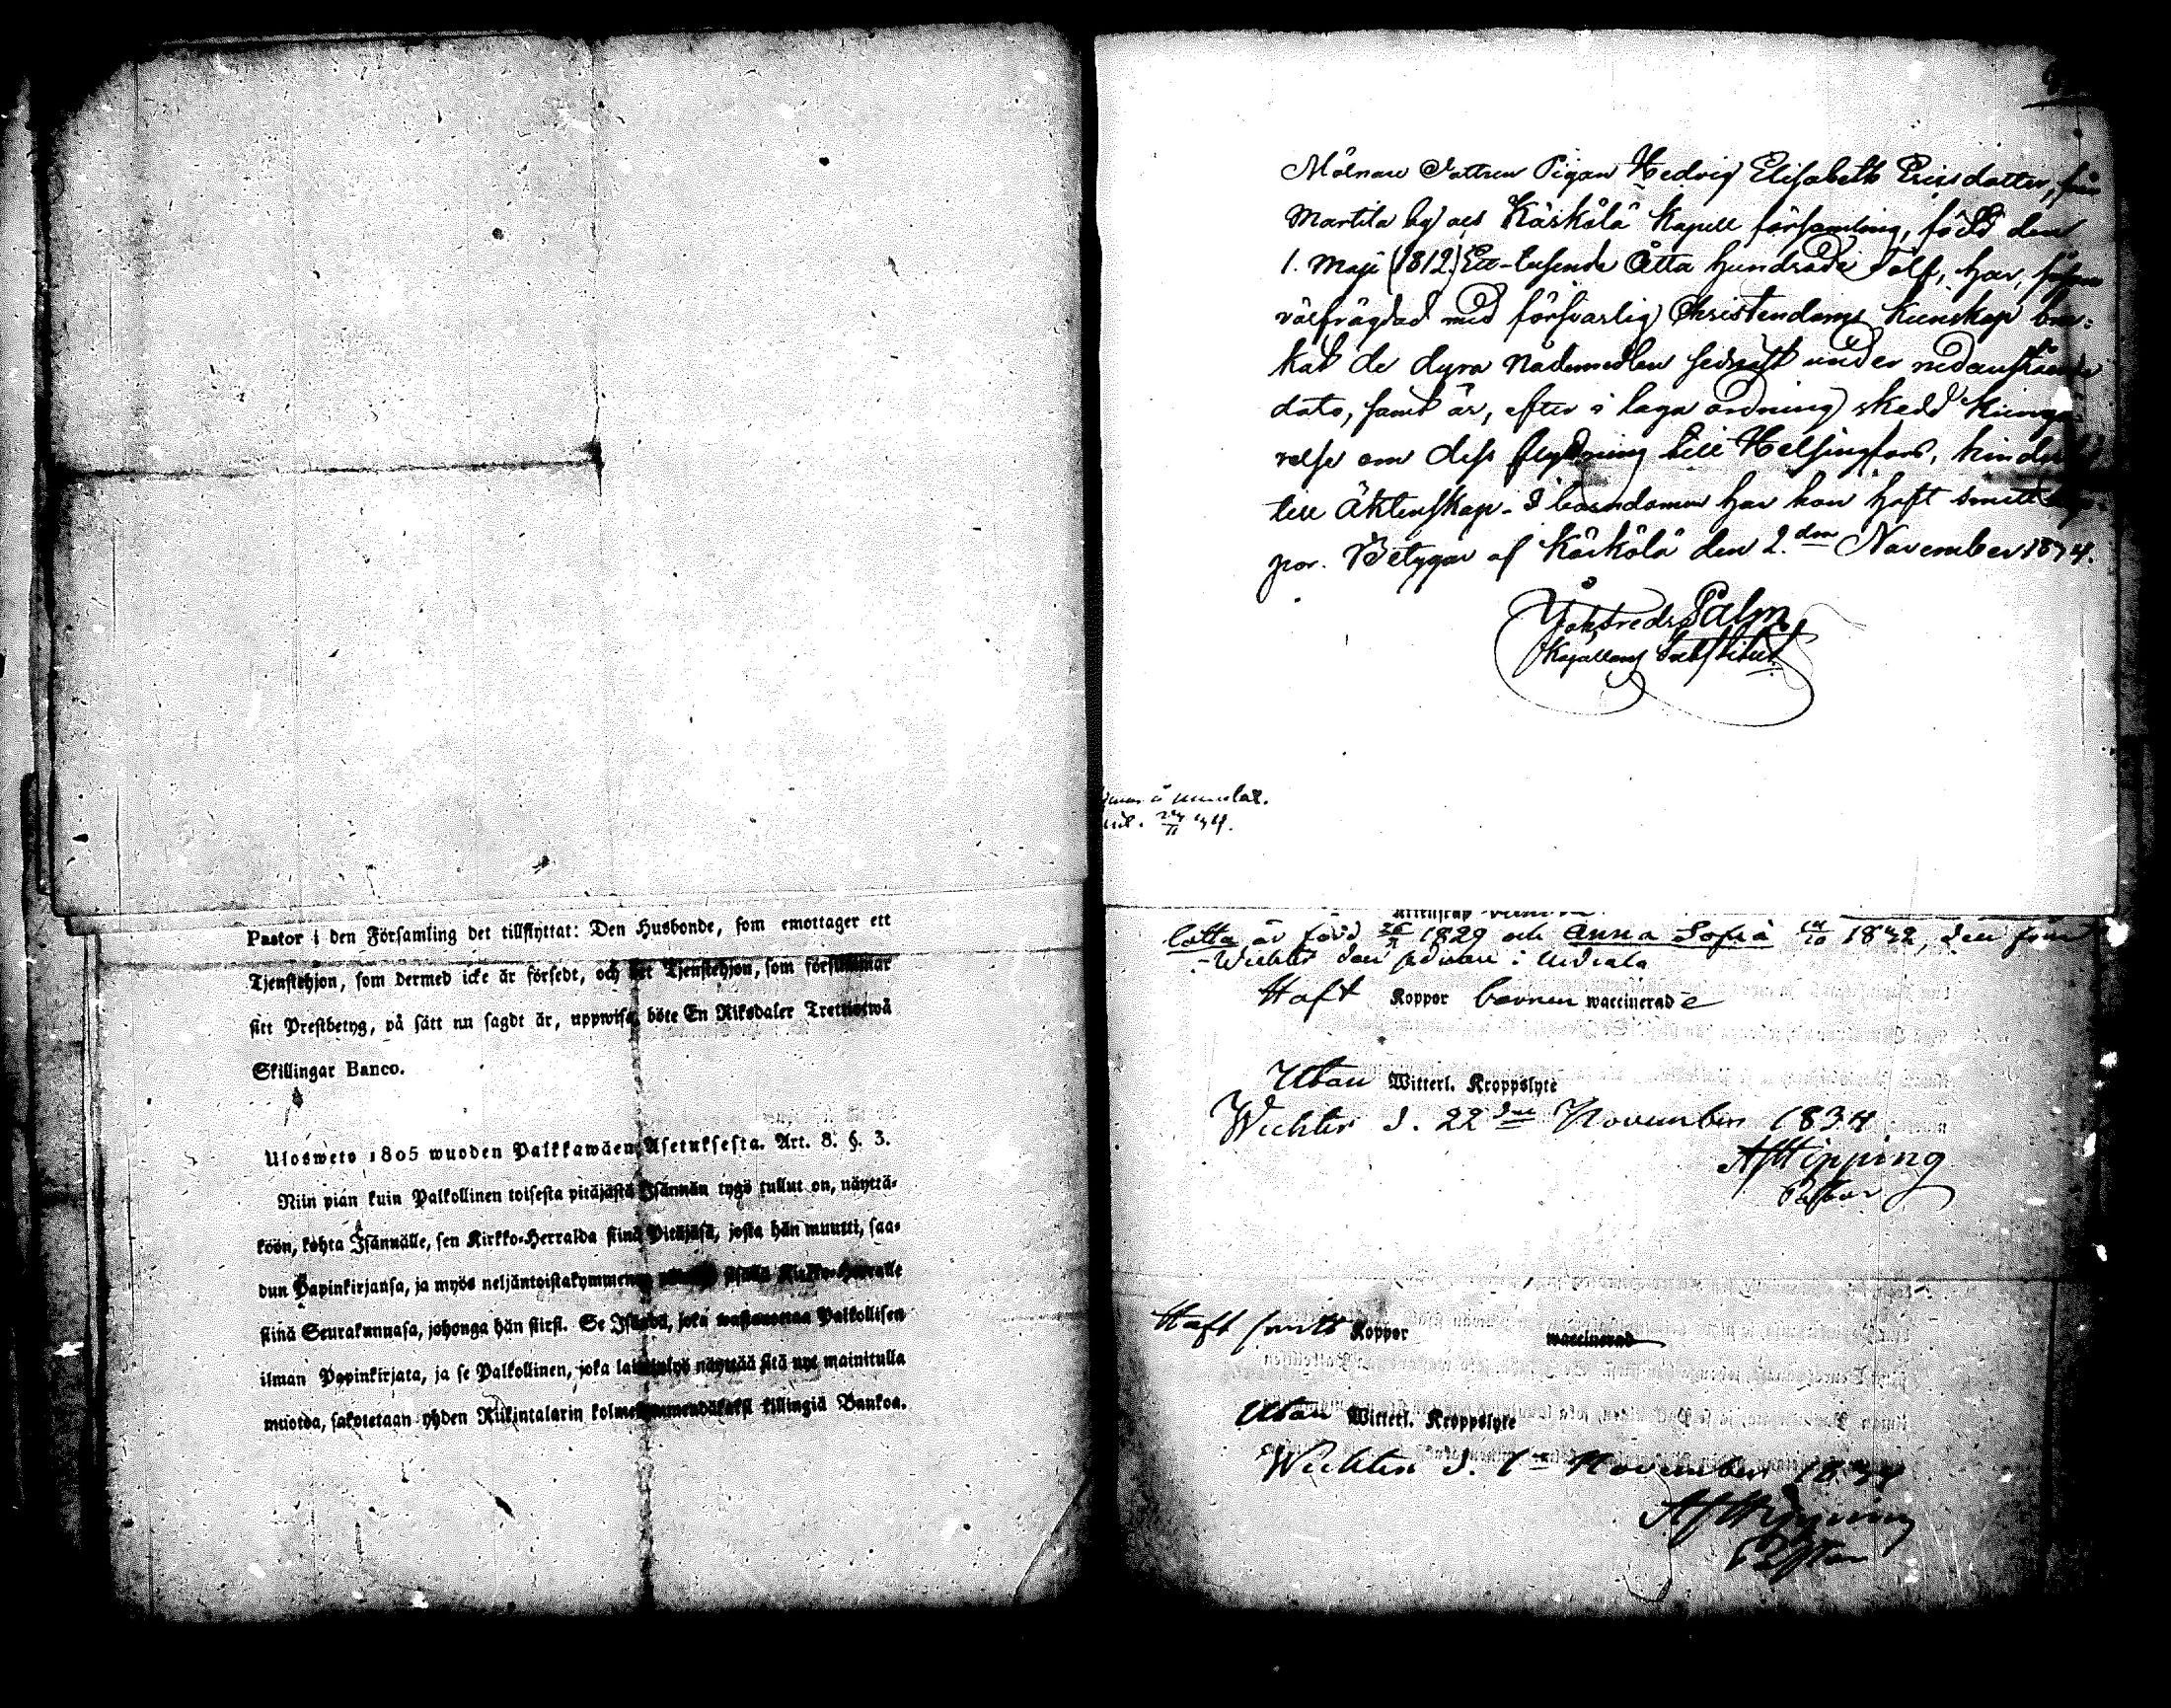 Pastor i den Församling det tillflyttat: Den Husbonde, som emottager ett
Tjenstehjon, som dermed icke är försedt, och det Tjenstehjon, som försummar
sitt Prestbetyg, på sätt nu sagdt är, uppwisa, böte En Riksdaler Trettiotwå
Skillingar Banco.
Ulosweto 1805 wuoden Palkkawäen Asetuksesta. Art. 8. §. 3.
Niin pian kuin Palkollinen toisesta pitäjästä Isännän tygö tullut on, näyttä-
köön, kohta Isännälle, sen Kirkko-Herralda siinä Pitäjäsä, josta hän muutti, saa-
dun Papinkirjansa, ja myös neljäntoistakymmenen sisällä Kirkko-Herralle
siinä Seurakunnasa, johonga hän siirsi. Se Isändä, joka wastanottaa Palkollisen
ilman Papinkirjata, ja se Palkollinen, joka näyttää sitä nyt mainitulla
muotoa, sakotetaan yhden Riikintalarin kolmekymmendäkaksi killingiä Bankoa.
Mölnare Dottren Pigan Hedvig Elisabeth Ericsdotter, från
Martila by af Kärkölä Kapell församling, född den
1. Maji (1812.) Ett-tusende Åtta hundrade Tolf, har,
välfrägdad med försvarlig Christendoms kunskap bru-
kat de dyra Nådemedlen sednast under nedanstående
dato, samt är, efter i laga ordning skedd kungö-
relse om dess flyttning till Helsingfors, hinder
till Äktenskap. I barndomen har hon haft smittkop-
por. Betygar af Kärkölä den 2.dm November 1834.
Palm
Kapellans Substitut.
34.
Lotta är född 1829 och Anna Sofia 1832, den
Wichtis den i
Haft Koppor barnen waccinerade
Utan Witterl. Kroppslyte
Wichtis d. 22dne November 1834
AJHipping
Pastor
Haft Koppor waccinerad
Utan Witterl. Kroppslyte
Wichtis d. November 1834
AJHipping
Pastor